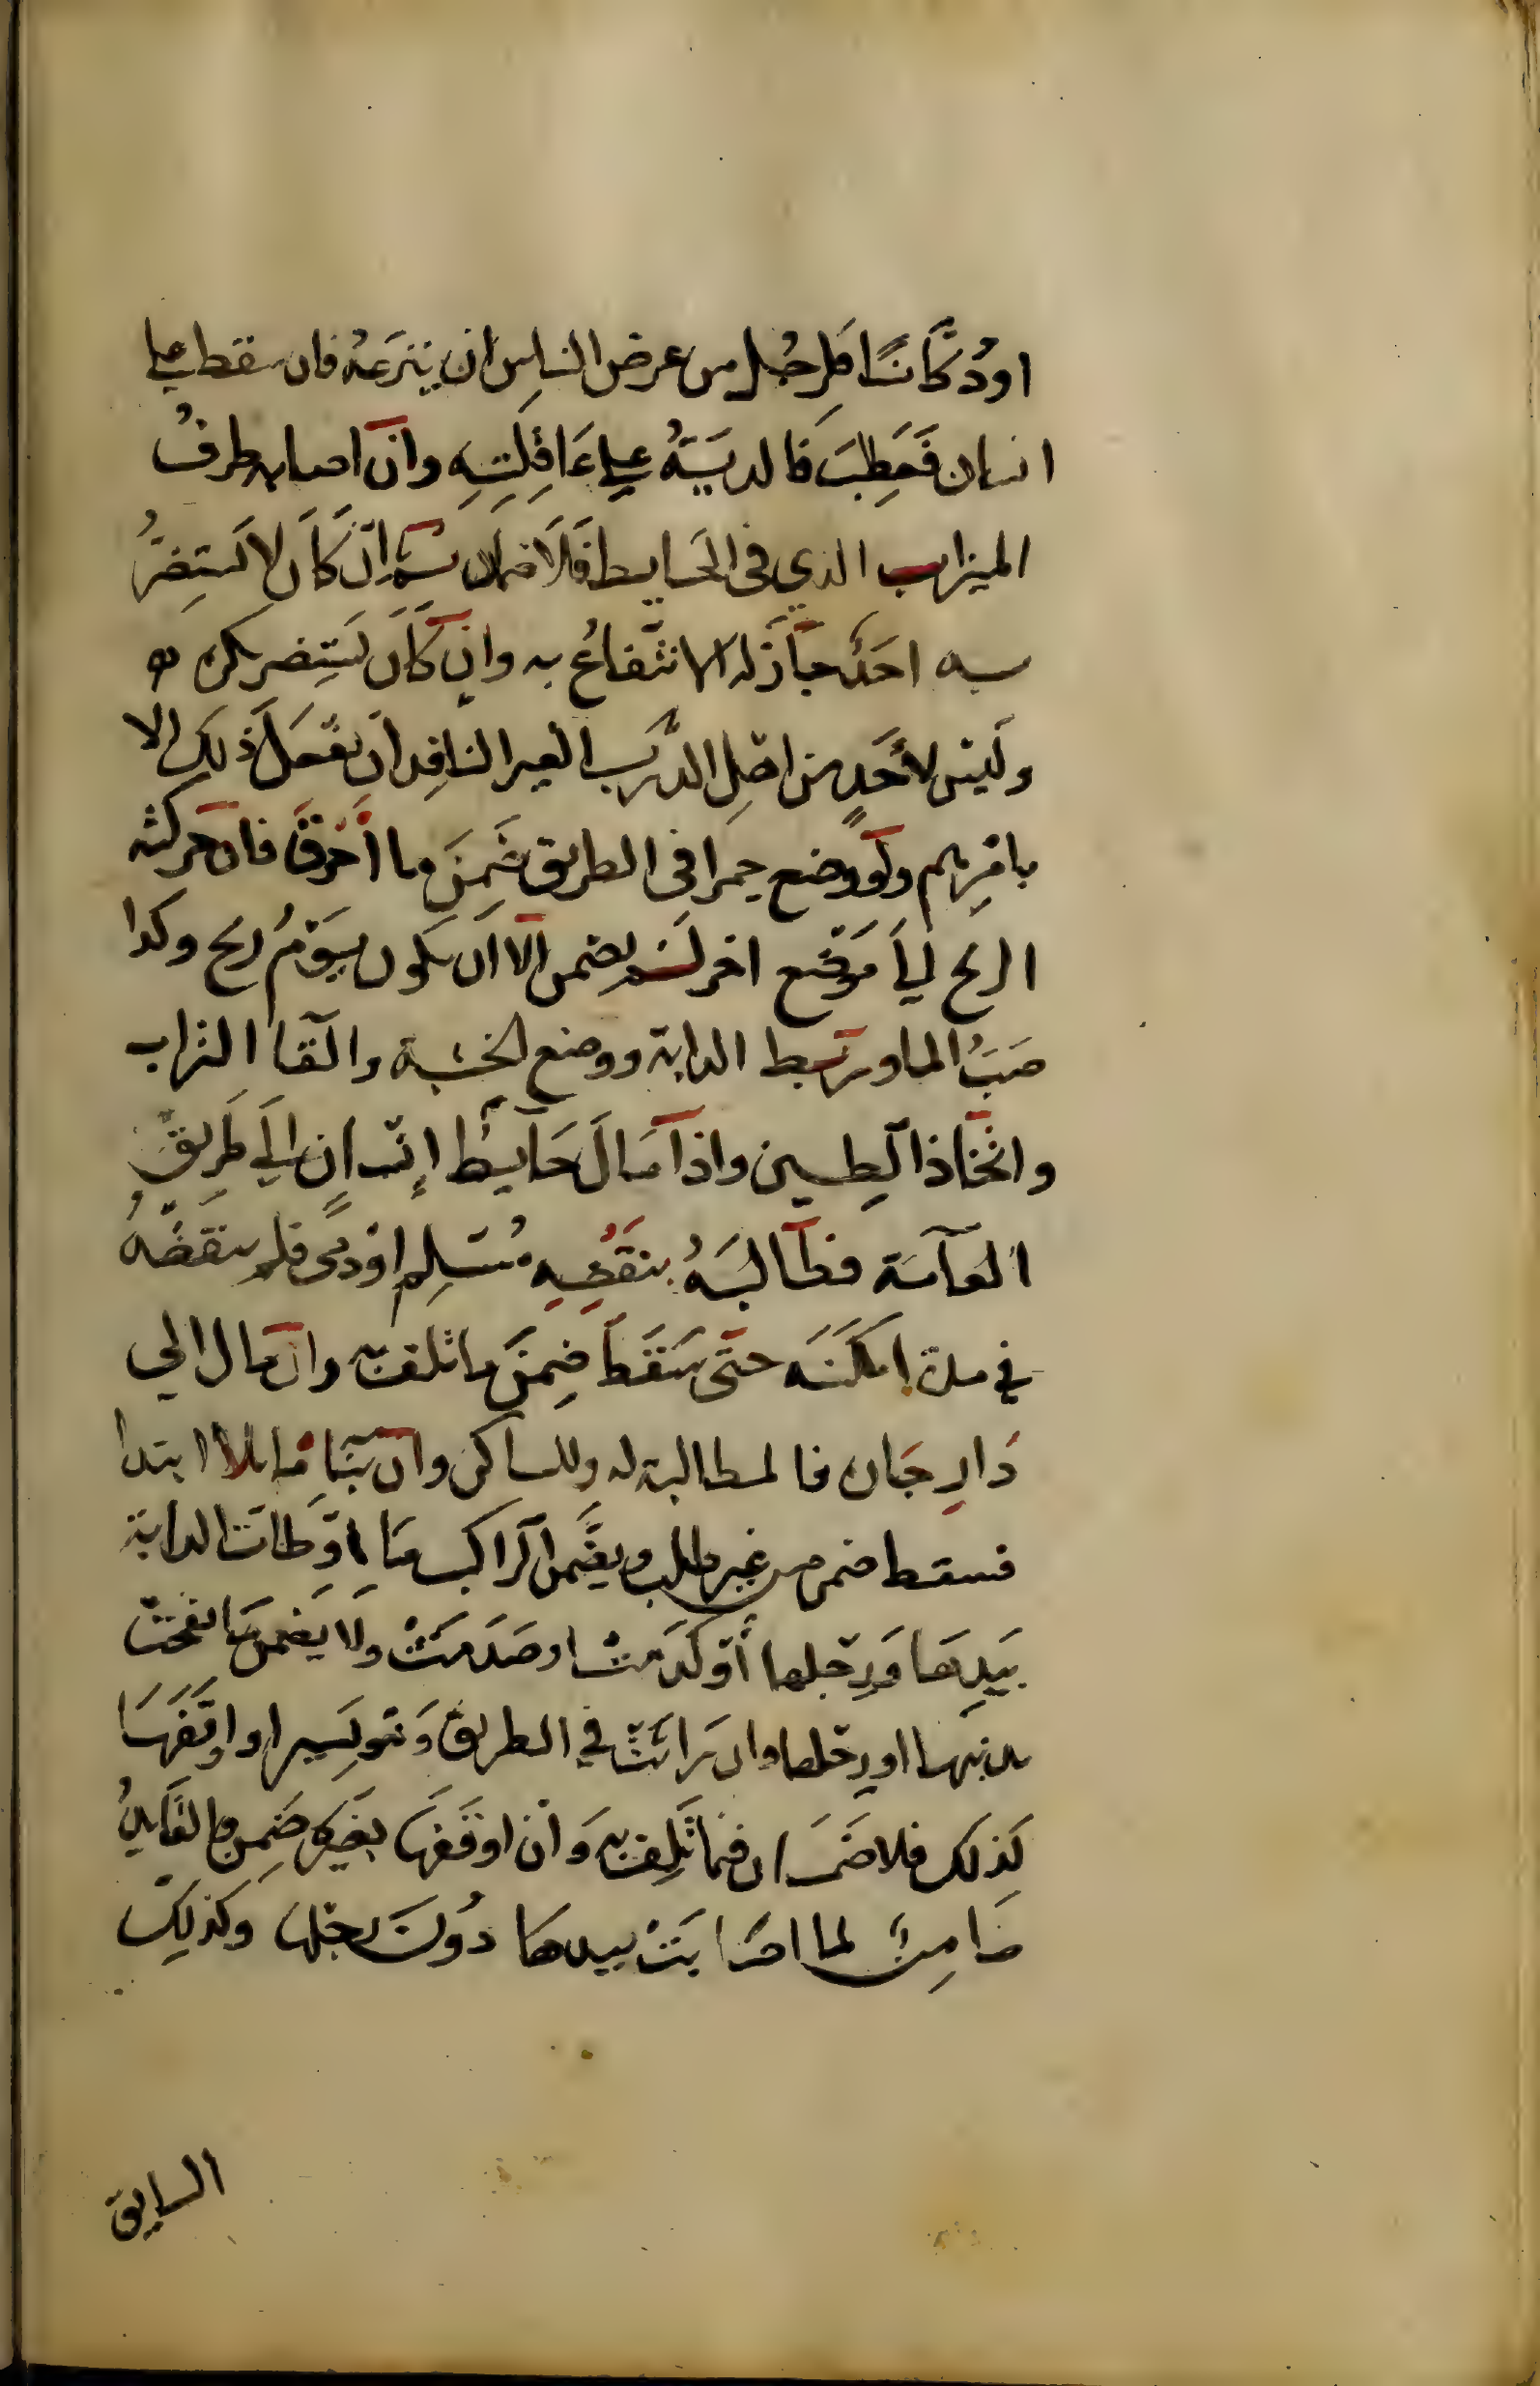 او دُكَّانًا فَلِرَجُل من عرض الناسِ ان ينزعَهُ فان سقط علي
انسان فَعَطِبَ فالديَتهُ علي عَاقِلَتِهِ وان اصابه طرفُ
الميزاب الدي في الحَايط فَلاَ ضمان ثم ان كَانَ لا يَستضِرُّ
به احَدٌ جَازَ له الانتفاعُ به وان كَانَ يَستضِر يكره
ولَيْسَ لأحَدٍ من اهْلِ الدَّرْب الغير النافِد ان يفعَلَ ذلك الا
باذنِهِم ولو وضع جمرا في الطريق ضَمِنَ ما أحْرَقَ فان حركته
الريح الي مَوْضِع اخر لَم يضمن الا ان يكون يَوْمُ ريح وكدا
صَبُّ الما وربط الدابة ووضع الخشبة والقا التراب
واتخاذ الطِين واذا مَالَ حَايطُ إنْسانٍ إلَي طَرِيقِ
العآمة فطَالَبَهُ بنقضِهِ مُسْلِم اوْ دمي فلم ينقضْهُ
في مدة امكَنَه حتَّى سَقَطَ ضِمنَ ما تلف به وان مال الي
دَارِ جَار فالمطالبة له وللساكن وان بنَاهُ مايلا ابتدا
فسقط ضمن من غير طلب ويضمن الراكب مَا اوْطَات الدابة
بيَدِهَا وَرِجلها أوْ كَدَمَتْ او صَدَمَتْ ولا يَضمن مَا نفحت
بدنبها او رجلها وان رَاثَتْ في الطريق وَهو يَسير او اوْقَفَهَا
لِذلك فلا ضَمَان فيما تَلِف به وَان اوقَفَهَا لغيره ضَمِن والقَايدُ
ضَامِنٌ لما اصَابَتْ بيدهَا دُونَ رجلها وكذلِكَ
السايق